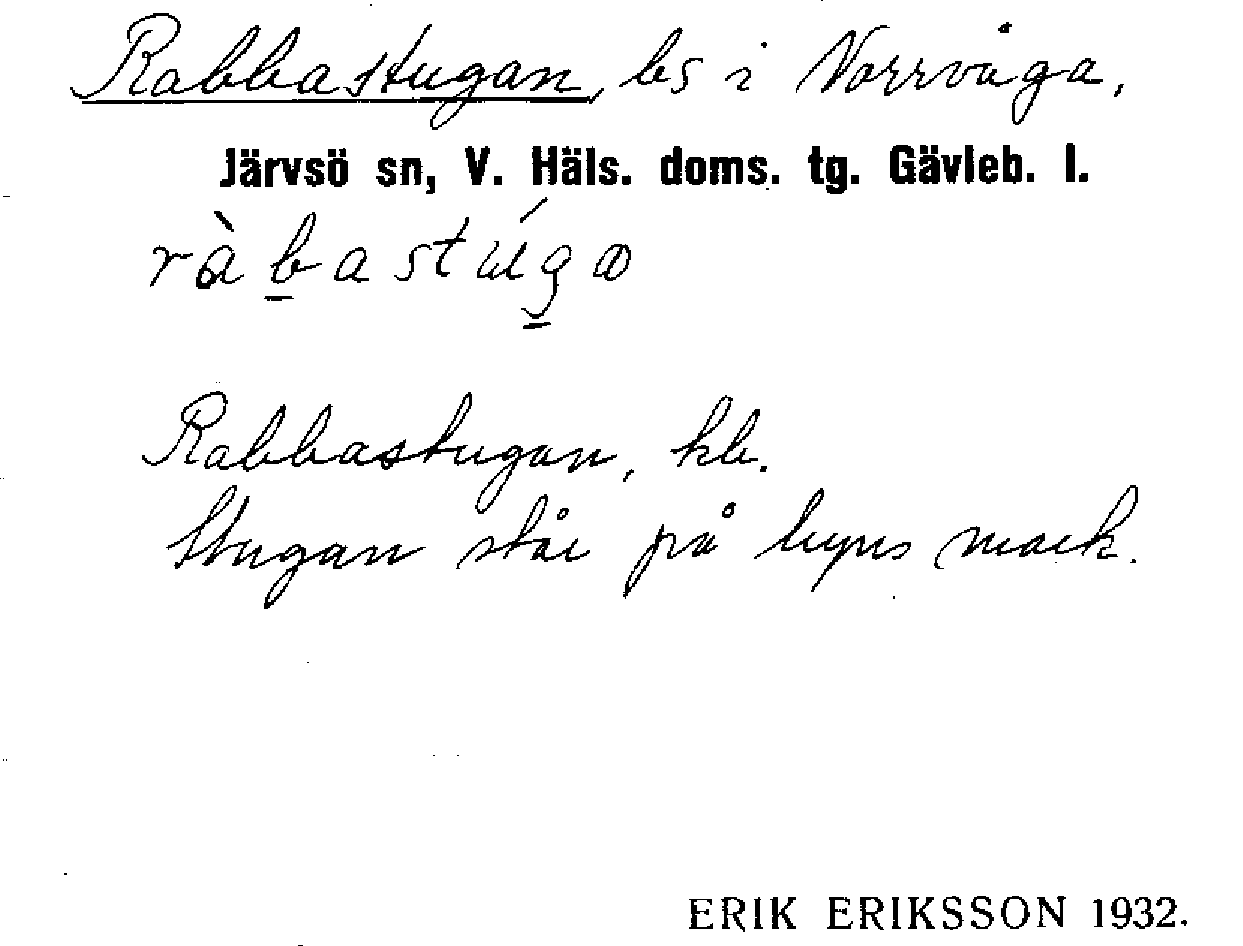 Rabbastugan, ls i Norrvåga,
Järvsö sn, V. Häls. doms. tg. Gävleb. l.
ràbastúgα
Rabbastugan, kb.
Stugan står på byns mark.
ERIK ERIKSSON 1932.